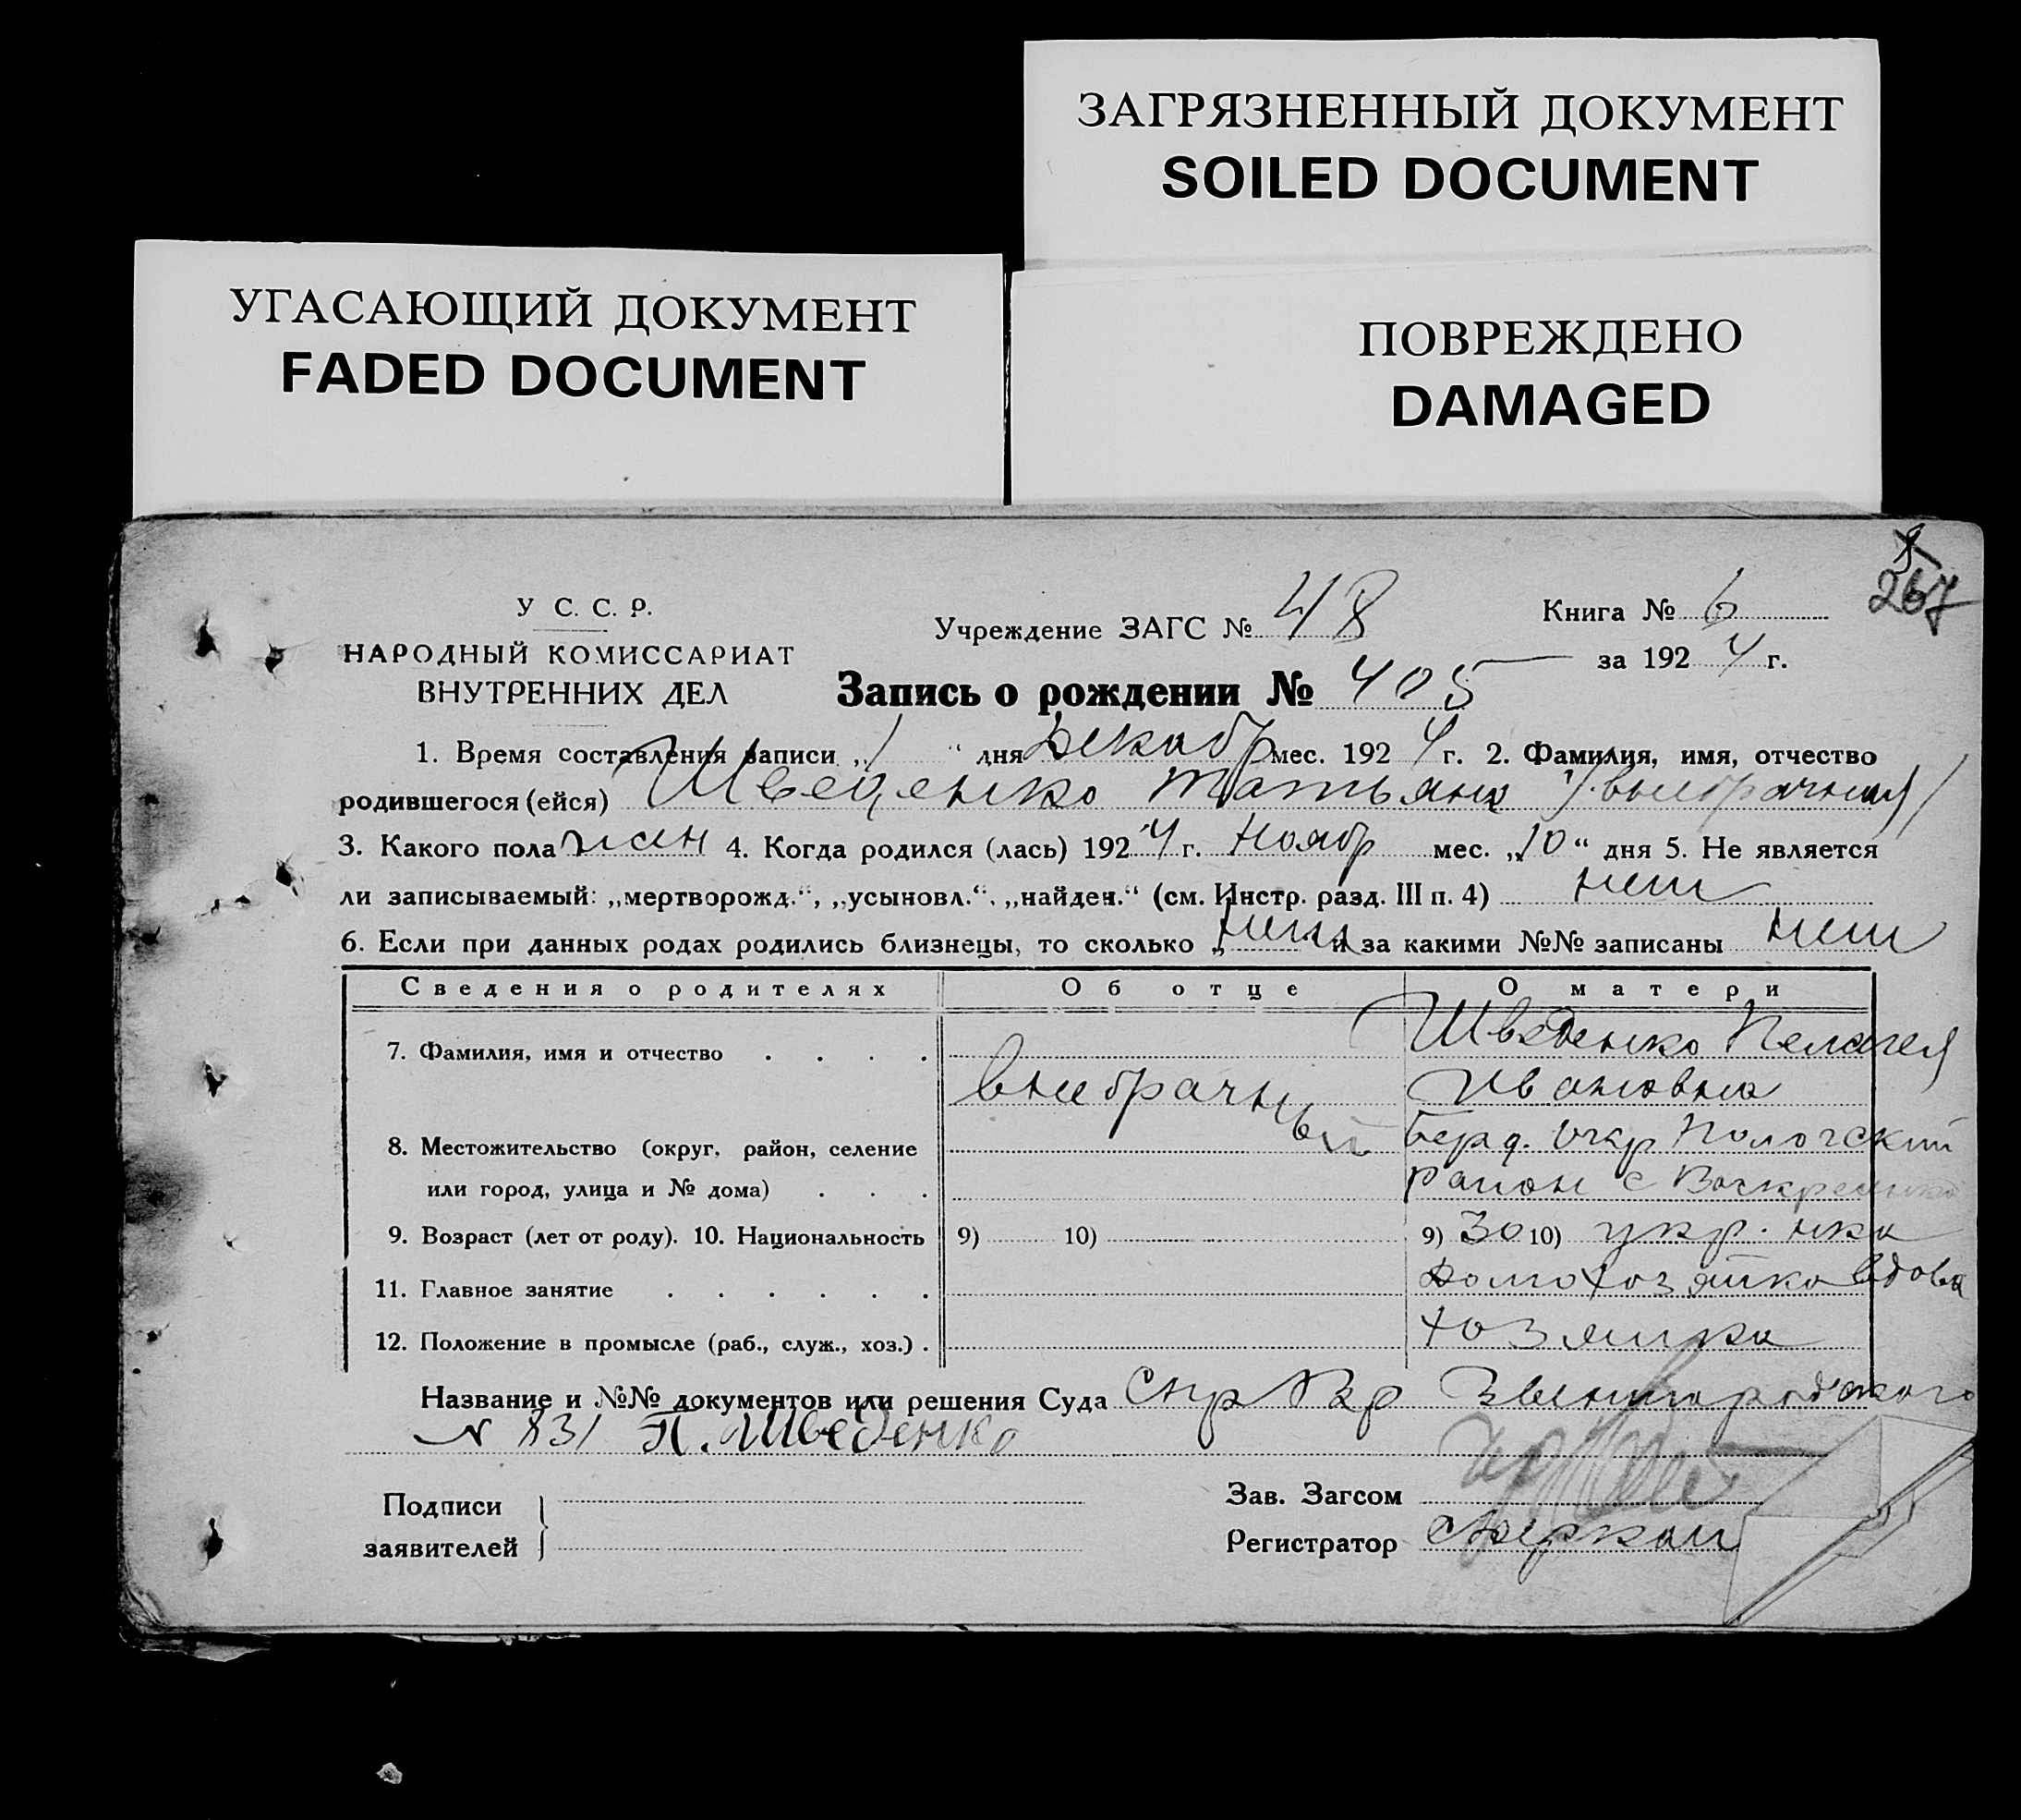 ЗАГРЯЗНЕННЫЙ ДОКУМЕНТ
SOILED DOCUMENT
УГАСАЮЩИЙ ДОКУМЕНТ
FADED DOCUMENT
ПОВРЕЖДЕНО
DAMAGED
267
У С. С. Р.
НАРОДНЫЙ КОМИССАРИАТ
ВНУТРЕННИХ ДЕЛ
Учреждение ЗАГС № 48
Книга № 6
за 192 4 г.
Запись о рождении № 405
1. Время составления записи „1“ дня Декабр мес. 192 4 г. 2. Фамилия, имя, отчество
родившегося (ейся) Шведенко Татьяна /внебрачная/
3. Какого пола жен 4. Когда родился (лась) 192 4 г. Ноябр мес. „10“ дня 5. Не является
ли записываемый: „мертворожд.“, „усыновл.“, „найден.“ (см. Инстр. разд. III п. 4) нет
6. Если при данных родах родились близнецы, то сколько „нет и за какими №№ записаны нет
Сведения о родителях Об отце О матери
7. Фамилия, имя и отчество . . . . Шведенко Пелагея
внебрачный Ивановна
8. Местожительство (округ, район, селение Берд. окр Пологский
или город, улица и № дома) . . . район с Воскресенка
9. Возраст (лет от роду). 10. Национальность 9) 10) 9) 30 10) укр. нка
11. Главное занятие . . . . . . домохозяйка вдова
12. Положение в промысле (раб., служ., хоз.) . хозяйка
Название и №№ документов или решения Суда
№ 831 П. Шведенко
Подписи
заявителей
Зав. Загсом
Регистратор